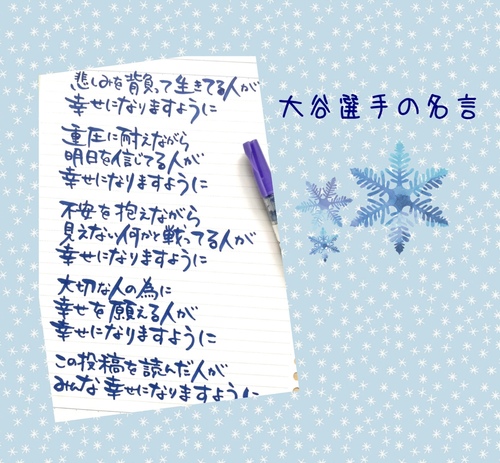 大谷選手の名言
悲しみを背負って生きてる人が
幸せになりますように
重圧に耐えながら
明日を信じてる人が
幸せになりますように
不安を抱えながら
見えない何かと戦ってる人が
幸せになりますように
大切な人の為に
幸せを願える人が
幸せになりますように
この投稿を読んだ人が
みんな幸せになりますように